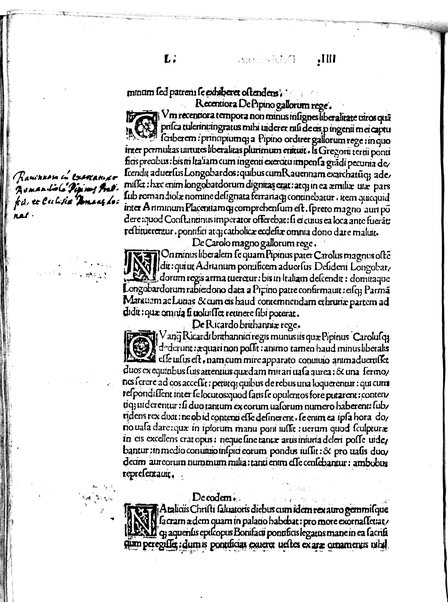 Li IIII
minum sed patrem se exhiberet ostendens.
Recentiora De Pipino gallorum rege.
CVm recentiora tempora non minus insignes liberalitate uiros quã
prisca tulerint ingratus mihi uiderer nisi de eis p ingenii mei captu
scriberem: principiumq; a Pipino ordirer gallorum rege: in quo
inter permultas uirtutes liberalitas plurimum enituit. is Gregorii tertii ponti
ficis precibus: bis in Italiam cum ingenti exercitu impensa grãdi pecunia de-
scendit aduersus Longobardos: quibus cum Rauennam exarchatũq; ade-
misset: hac enim longobardorum dignitas erat: atq; in ea æmiliæ uiæ pars
sub romandiolæ nomine designata ferrariaq; continebatur. item quicquid
inter Ariminum Placentiamq; comprehensum est. spreto magno auri põ
dere: quod Constantini imperator offerebat: si ei cuius ea loca ante fuerãt
restituerentur. pontifici atq; catholicæ ecclesiæ omnia dono dare maluit.
De Carolo magno gallorum rege.
NOn minus liberalem se quam Pipinus pater Carolus magnus ostẽ
dit: qui ut Adrianum pontificem aduersus Desiderii Longobar/
dorum regis arma tueretur: bis in Italiam descendit: domitaque
Longobardorum rabie dono data a Pipino patre confirmauit: eisq; Parmã
Mantuam ac Lunas & cum eis haud contemnendam etruriæ partem ad
didit: quæ omnia si uoluisset retinere sibi poterat.
De Ricardo brithanniæ rege.
QVanq̃ Ricardi brithannici regis munus iis quæ Pipinus Carolusq;
dederunt: æquari non possit: animo tamen haud minus liberalis
esse uisus est. nam cum mire apparato conuiuio animaduertisset
duos ex equitibus suis attentius quædam mirari uasa aurea: & una sermo/
nes serere ad eos accessit: petiitq; quibus de rebus una loquerentur: qui cum
respondissent inter se locutos quod satis se opulentos fore putarent: conten/
tiq; uiderentur: si duo tantum ex eorum uasorum numero haberent: sub/
ridens rex dixit: ne ob id contenti esse desinerent. se enim ea ipsa hora do/
no uasa dare: quæ in ipsorum manu poni iussit: uerum quod sculpturæ
in eis excellens erat opus: neque sine tantæ artis iniuria deleri posse uide/
bantur: in medio conuiuio inspici eorum pondus iussit: & pro uasis duo/
decim aureorum nummum milia: tanti enim esse censebantur: ambobus
repræsentauit.
De eodem.
NAtaliciis Christi saluatoris diebus cum idem rex auro gemmisque
sacram ædem quam in palatio habebat: pro more exornasset: at/
q; aquensis episcopus Bonifacii pontificis legatus mane in ea sacrifi
cium peregisset: dum is pontificias exueret uestes ex aræ ornamentis nihil